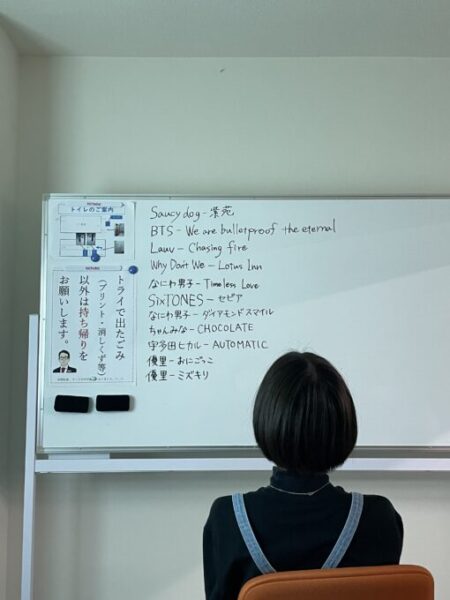 トイレのご案内
トライで出たごみ
(プリント・消しくず等)
以外は持ち帰りを
お願いします。
Saucy dog - 紫苑
BTS - We are bulletproof the eternal
Lauv - Chasing fire
Why Don't We - Lotus Inn
なにわ男子 - Timeless Love
SixTONES - セピア
なにわ男子 - ダイアモンドスマイル
ちゃんみな - CHOCOLATE
宇多田ヒカル - AUTOMATIC
優里 - おにごっこ
優里 - ミズキリ